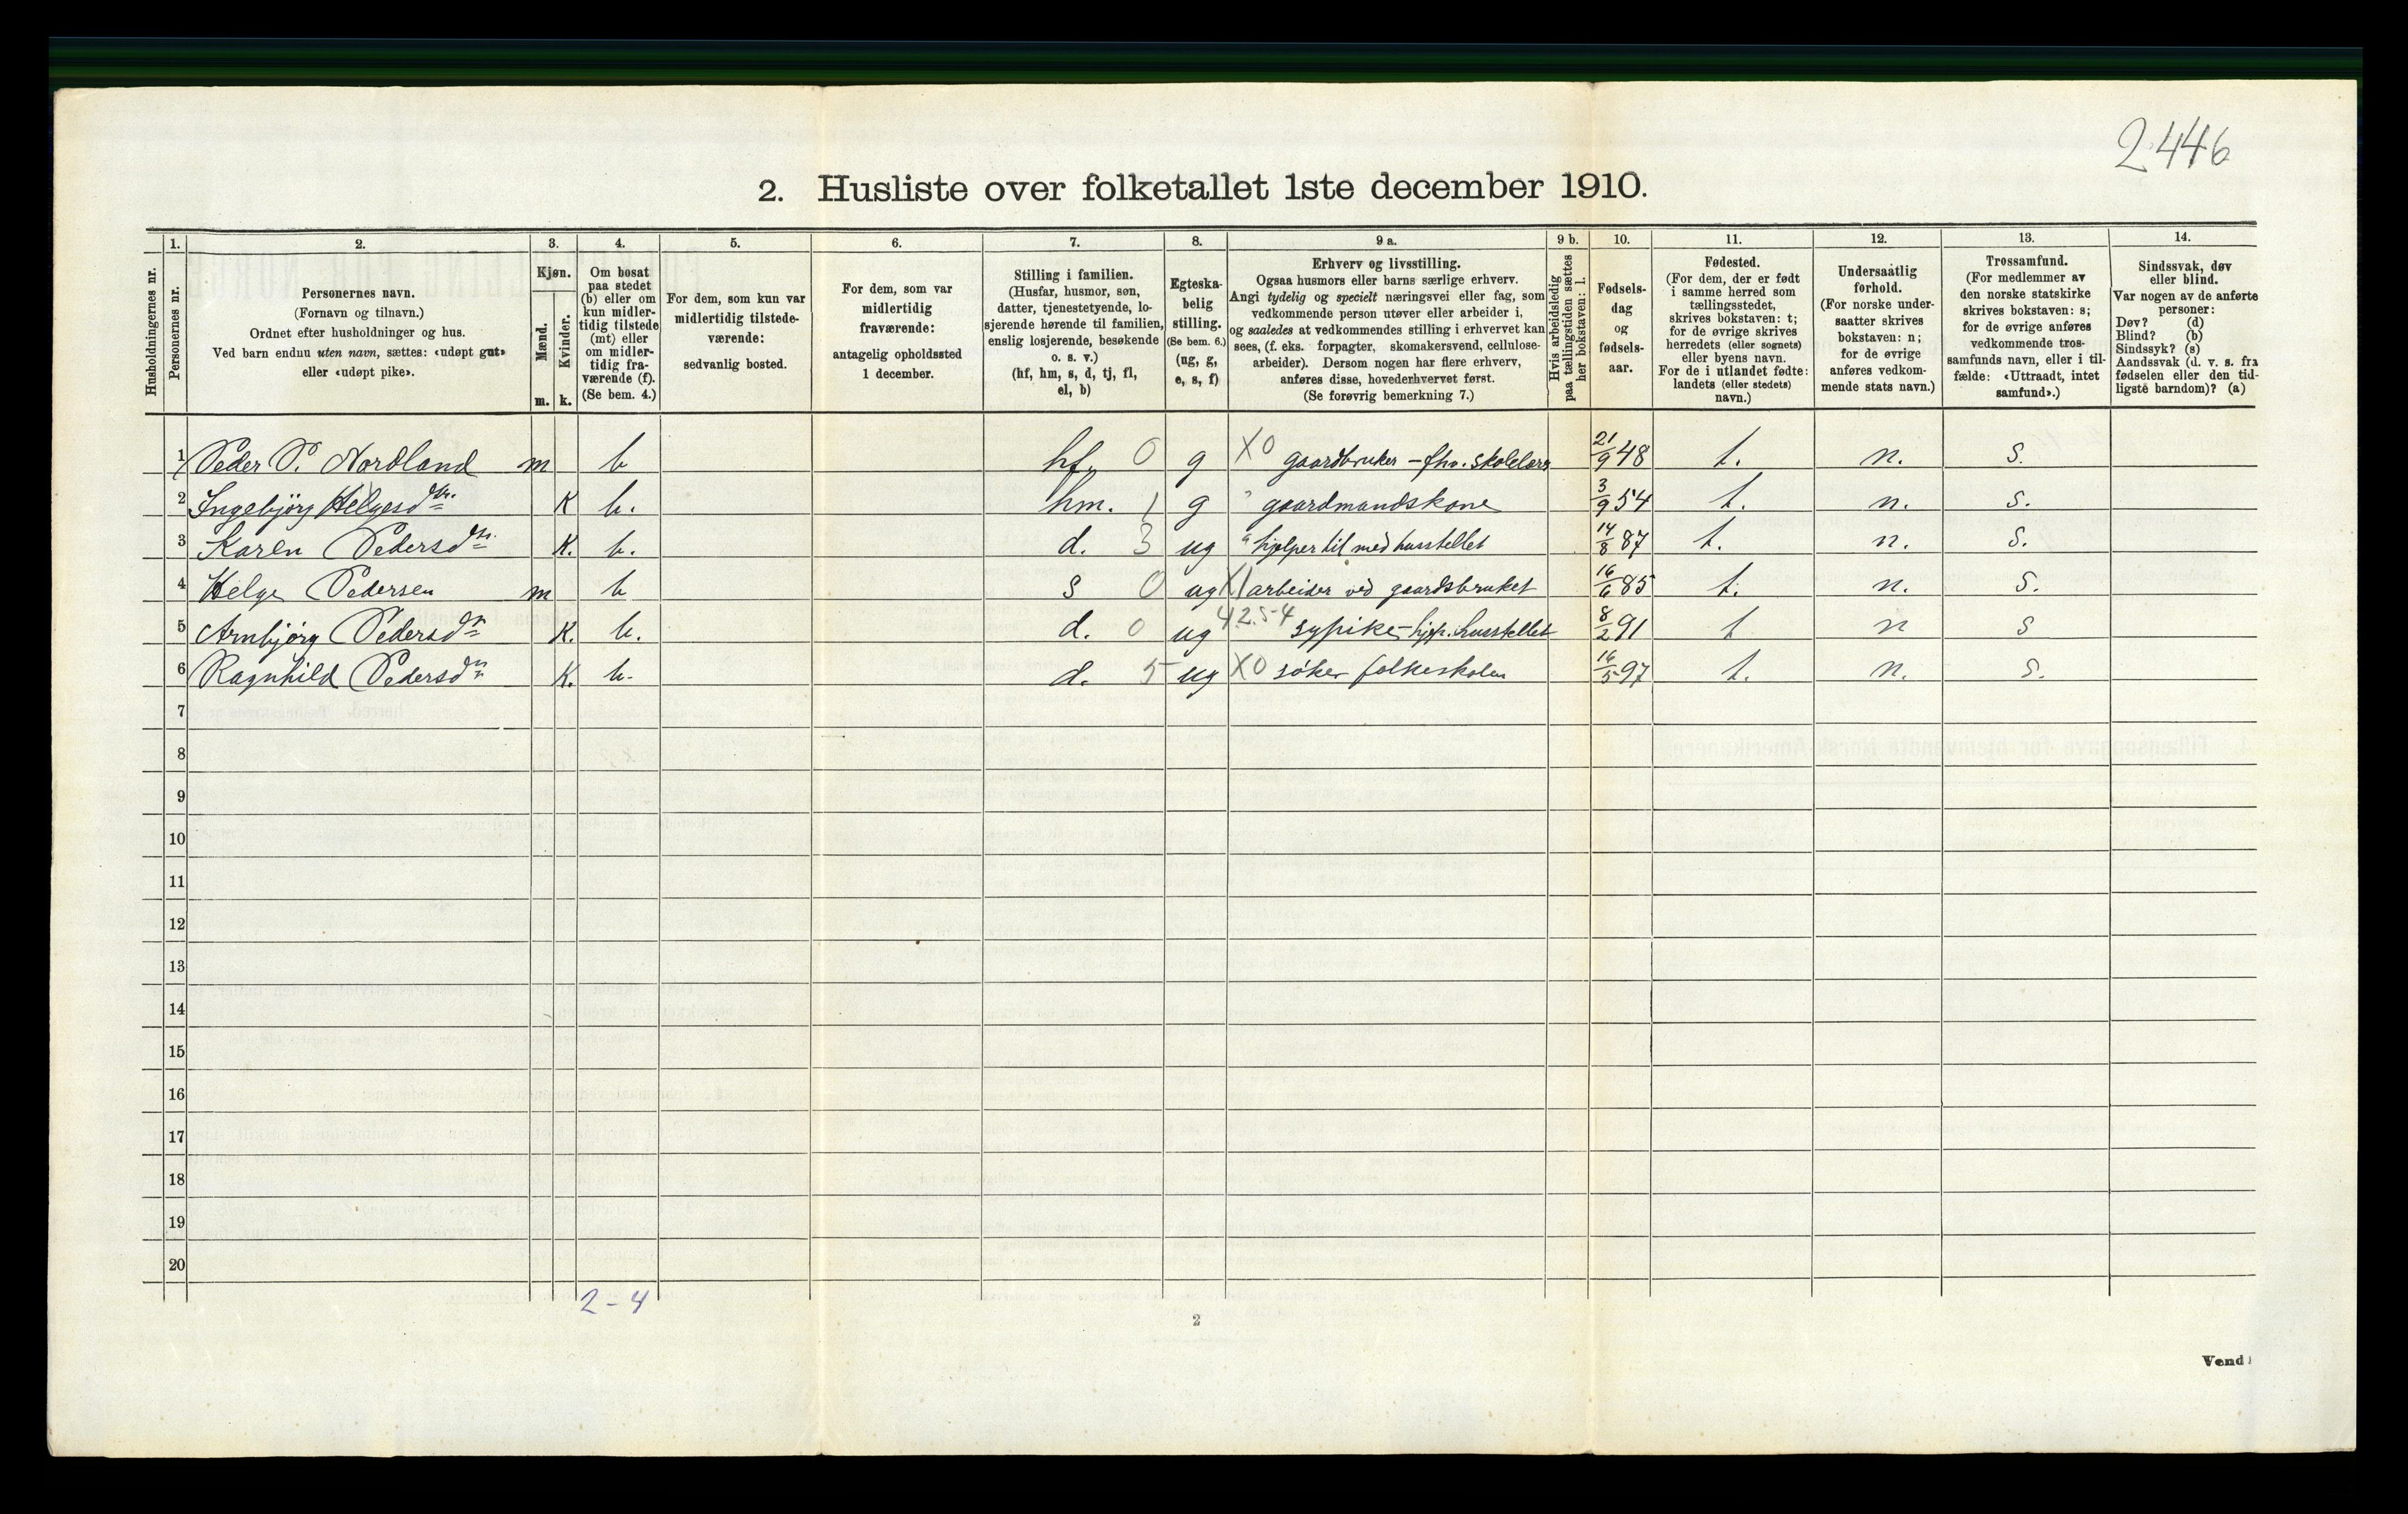 2446
2. Husliste over folketallet 1ste december 1910.
Husholdningernes nr.
1. Personernes nr.
2. Personernes navn.
(Fornavn og tilnavn.)
Ordnet efter husholdninger og hus.
Ved barn endnu uten navn, sættes: «udøpt gut»
eller «udøpt pike».
3. Kjøn.
Mænd. m.
Kvinder. k.
4. Om bosat
paa stedet
(b) eller om
kun midler-
tidig tilstede
(mt) eller
om midler-
tidig fra-
værende (f).
(Se bem. 4.)
5. For dem, som kun var
midlertidig tilstede-
værende:
sedvanlig bosted.
6. For dem, som var
midlertidig
fraværende:
antagelig opholdssted
1 december.
7. Stilling i familien.
(Husfar, husmor, søn,
datter, tjenestetyende, lo-
sjerende hørende til familien,
enslig losjerende, besøkende
o. s. v.)
(hf, hm, s, d, tj, fl,
el, b)
8. Egteska-
belig
stilling.
(Se bem. 6.)
(ug, g,
e, s, f)
9 a. Erhverv og livsstilling.
Ogsaa husmors eller barns særlige erhverv.
Angi tydelig og specielt næringsvei eller fag, som
vedkommende person utøver eller arbeider i,
og saaledes at vedkommendes stilling i erhvervet kan
sees, (f. eks. forpagter, skomakersvend, cellulose-
arbeider). Dersom nogen har flere erhverv,
anføres disse, hovederhvervet først.
(Se forøvrig bemerkning 7.)
9 b. Hvis arbeidsledig
paa tællingstiden sættes
her bokstaven: l.
10. Fødsels-
dag
og
fødsels-
aar.
11. Fødested.
(For dem, der er født
i samme herred som
tællingsstedet,
skrives bokstaven: t;
for de øvrige skrives
herredets (eller sognets)
eller byens navn.
For de i utlandet fødte:
landets (eller stedets)
navn.)
12. Undersaatlig
forhold.
(For norske under-
saatter skrives
bokstaven: n;
for de øvrige
anføres vedkom-
mende stats navn.)
13. Trossamfund.
(For medlemmer av
den norske statskirke
skrives bokstaven: s;
for de øvrige anføres
vedkommende tros-
samfunds navn, eller i til-
fælde: «Uttraadt, intet
samfund».)
14. Sindssvak, døv
eller blind.
Var nogen av de anførte
personer:
Døv? (d)
Blind? (b)
Sindssyk? (s)
Aandssvak (d. v. s. fra
fødselen eller den tid-
ligste barndom)? (a)
1 Peder P. Nordland m b hf. 0 g X0 gaardbruker - fhv. skolelærer 21/9 48 t. n. s.
2 Ingebjörg Helgesdtr. K b. hm. 1 g " gaardmandskone 3/9 54 t. n. s.
3 Karen Pedersdtr. K. b. d. 3 ug " hjelper til med husstellet 14/8 87 t. n. s.
4 Helge Pedersen m b s 0 ug X1 arbeider ved gaardsbruket 16/6 85 t. n. s.
5 Arnbjørg Pedersdtr K. b. d. 0 ug 4.2.5-4 sypike - hjæp. i husstellet 8/2 91 t n s
6 Ragnhild Pedersdtr K. b. d. 5 ug X0 søker folkeskolen 16/5 97 t. n. s.
7
8
9
10
11
12
13
14
15
16
17
18
19
20
2 - 4
2
Vend!